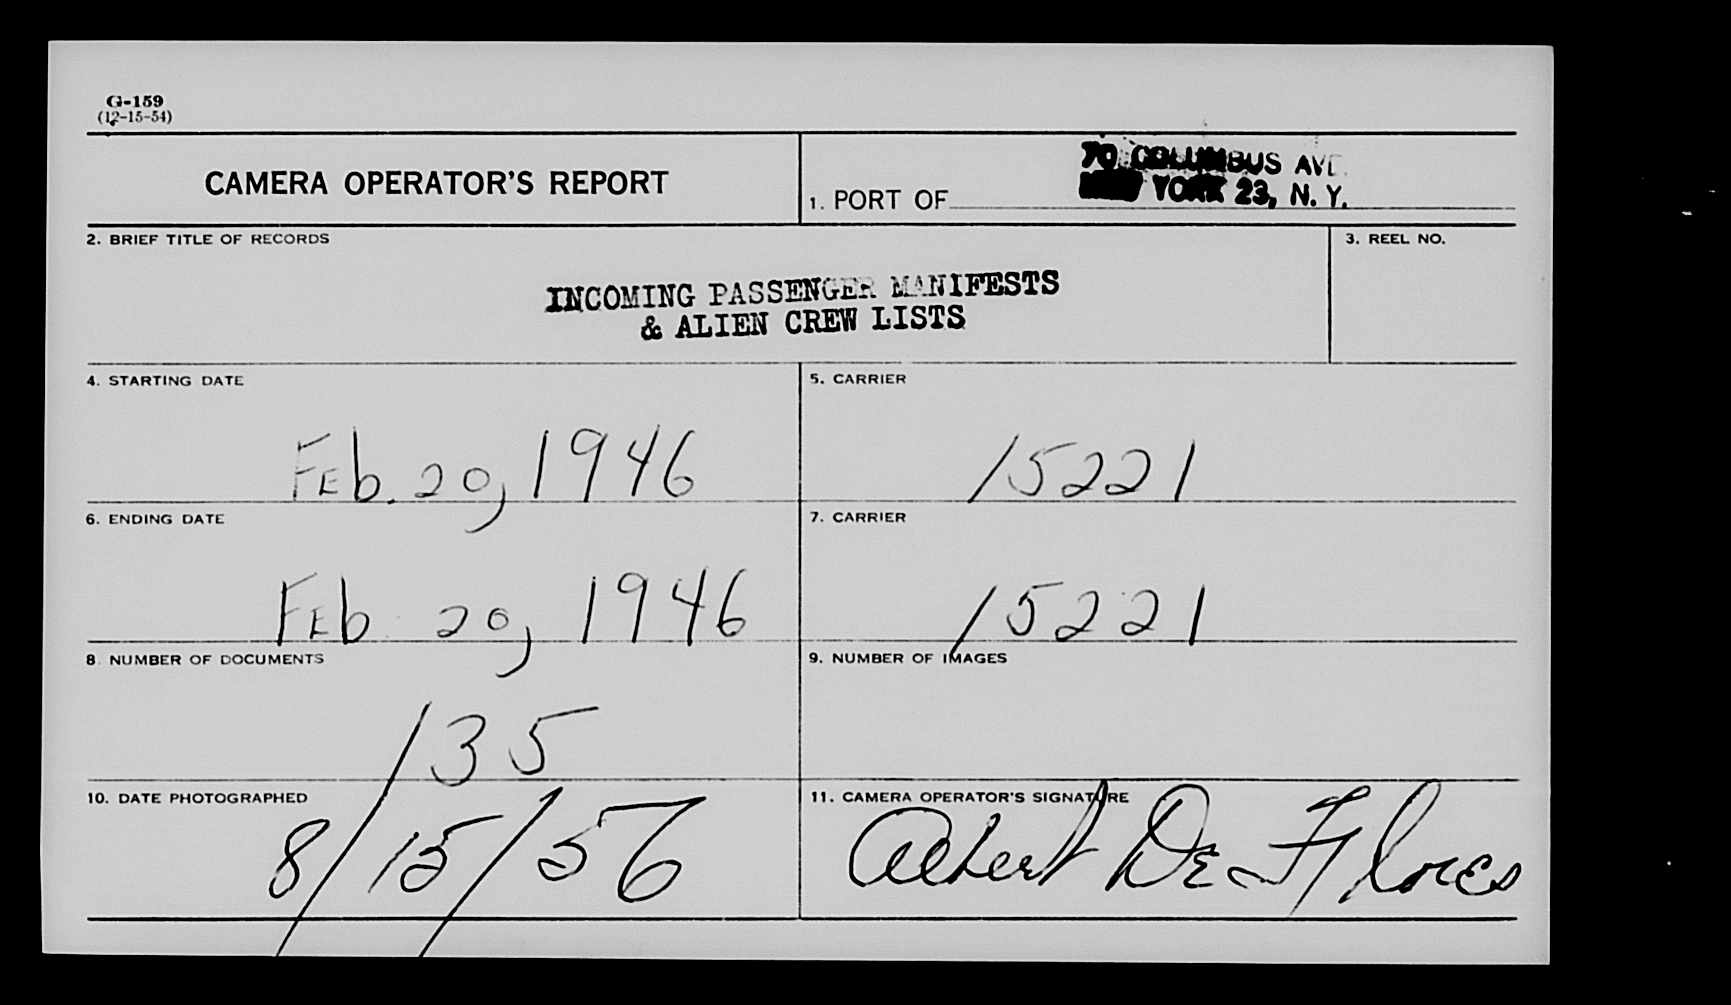 G-159
(12-15-54)
CAMERA OPERATOR'S REPORT
1. PORT OF
70 COLUMBUS AVE.
NEW YORK 23, N. Y.
2. BRIEF TITLE OF RECORDS
3. REEL NO.
INCOMING PASSENGER MANIFESTS
& ALIEN CREW LISTS
4. STARTING DATE
5. CARRIER
Feb. 20, 1946
15221
6. ENDING DATE
7. CARRIER
Feb 20, 1946
15221
8. NUMBER OF DOCUMENTS
9. NUMBER OF IMAGES
135
10. DATE PHOTOGRAPHED
11. CAMERA OPERATOR'S SIGNATURE
8/15/56
Albert De Flores